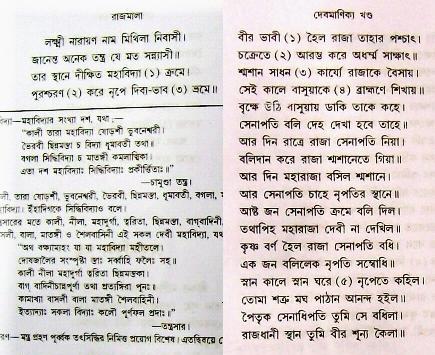 রাজমালা
লক্ষ্মী নারায়ণ নাম মিথিলা নিবাসী।
জানেন্ত অনেক তন্ত্র যে মত সন্ন্যাসী।।
তার স্থানে দীক্ষিত মহাবিদ্যা (১) ক্রমে।
পুরশ্চরণ (২) করে নৃপে দিবা-ভাব (৩) ভ্রমে।।
বিদ্যা—মহাবিদ্যার সংখ্যা দশ, যথা:—
"কালী তারা মহাবিদ্যা ষোড়শী ভুবনেশ্বরী।
ভৈরবী ছিন্নমস্তা চ বিদ্যা ধূমাবতী তথা।।
বগলা সিদ্ধিবিদ্যাও চ মাতঙ্গী কমলাত্মিকা।
এতা দশ মহাবিদ্যাঃ সিদ্ধিবিদ্যাঃ প্রকীর্ত্তিতাঃ।।"
—চামুণ্ডা তন্ত্র।
লী, তারা, ষোড়শী, ভুবনেশ্বরী, ভৈরবী, ছিন্নমস্তা, ধূমাবতী, বগলা,
হাবিদ্যা। ইঁহাদিগকে সিদ্ধিবিদ্যাও বলে।
সারের মতে কালী, নীলা, মহাদুর্গা, ত্বরিতা, ছিন্নমস্তা, বাগ্বাদিনী,
বাসলী, বালা, মাতঙ্গী ও শৈলবাসিনী এই সকল দেবী মহাবিদ্যা, যথা
"অথ বক্ষ্যামাহং যা যা মহাবিদ্যা মহীতলে।
দোষজালৈর সংস্পৃষ্টা স্তাঃ সর্ব্বাহি ফলৈঃ সহ।।
কালী নীলা মহাদুর্গা ত্বরিতা ছিন্নমস্তকা।
বাগ্ বাদিনীচান্নপূর্ণা তথা প্রত্যঙ্গিরা পুনঃ।।
কামাখ্যা বাসলী বালা মাতঙ্গী শৈলবাসিনী।
ইত্যাদ্যাঃ সকলা বিদ্যাঃ কলৌ পূর্ণফল প্রদাঃ।।"
—তন্ত্রসার।
রণ— মন্ত্র গ্রহণ পূর্ব্বক তৎসিদ্ধির নিমিত্ত প্রয়োগ বিশেষ। এতদ্বিষয়ে
দেবমাণিক্য খণ্ড
বীর ভাবী (১) হৈল রাজা তাহার পশ্চাৎ।
চক্রেতে (২) আরম্ভ করে অধর্ম্ম সাক্ষাৎ।।
শ্মশান সাধন (৩) কার্য্যে রাজাকে বৈসায়।
সেই কালে বাসুয়াকে (৪) ব্রাহ্মণে শিখায়।।
বৃক্ষে উঠি বাসুয়ায় ডাকি তাকে কহে।
সেনাপতি বলি দেহ দেখা হবে তাহে।।
আর দিন রাত্রে রাজা সেনাপতি নিয়া।
বলিদান করে রাজা শ্মশানেতে গিয়া।।
আর দিন মহারাজা বসিল শ্মশানে।
আর সেনাপতি চাহে নৃপতির স্থানে।।
আষ্ট জন সেনাপতি ক্রমে বলি দিল।
তথাপিহ মহারাজা দেবী না দেখিল।।
কৃষ্ণ বর্ণ হৈল রাজা সেনাপতি বধি।
এক জন বলিলেক নৃপতি সম্বোধি।।
স্নান কালে স্নান ঘরে (৫) নৃপেতে কহিল।
তোমা শত্রু মঘ পাঠান আনন্দ হইল।।
পৈতৃক সেনাধিপতি তুমি সে বধিলা।
রাজধানী স্থান তুমি বীর শূন্য কৈলা।।